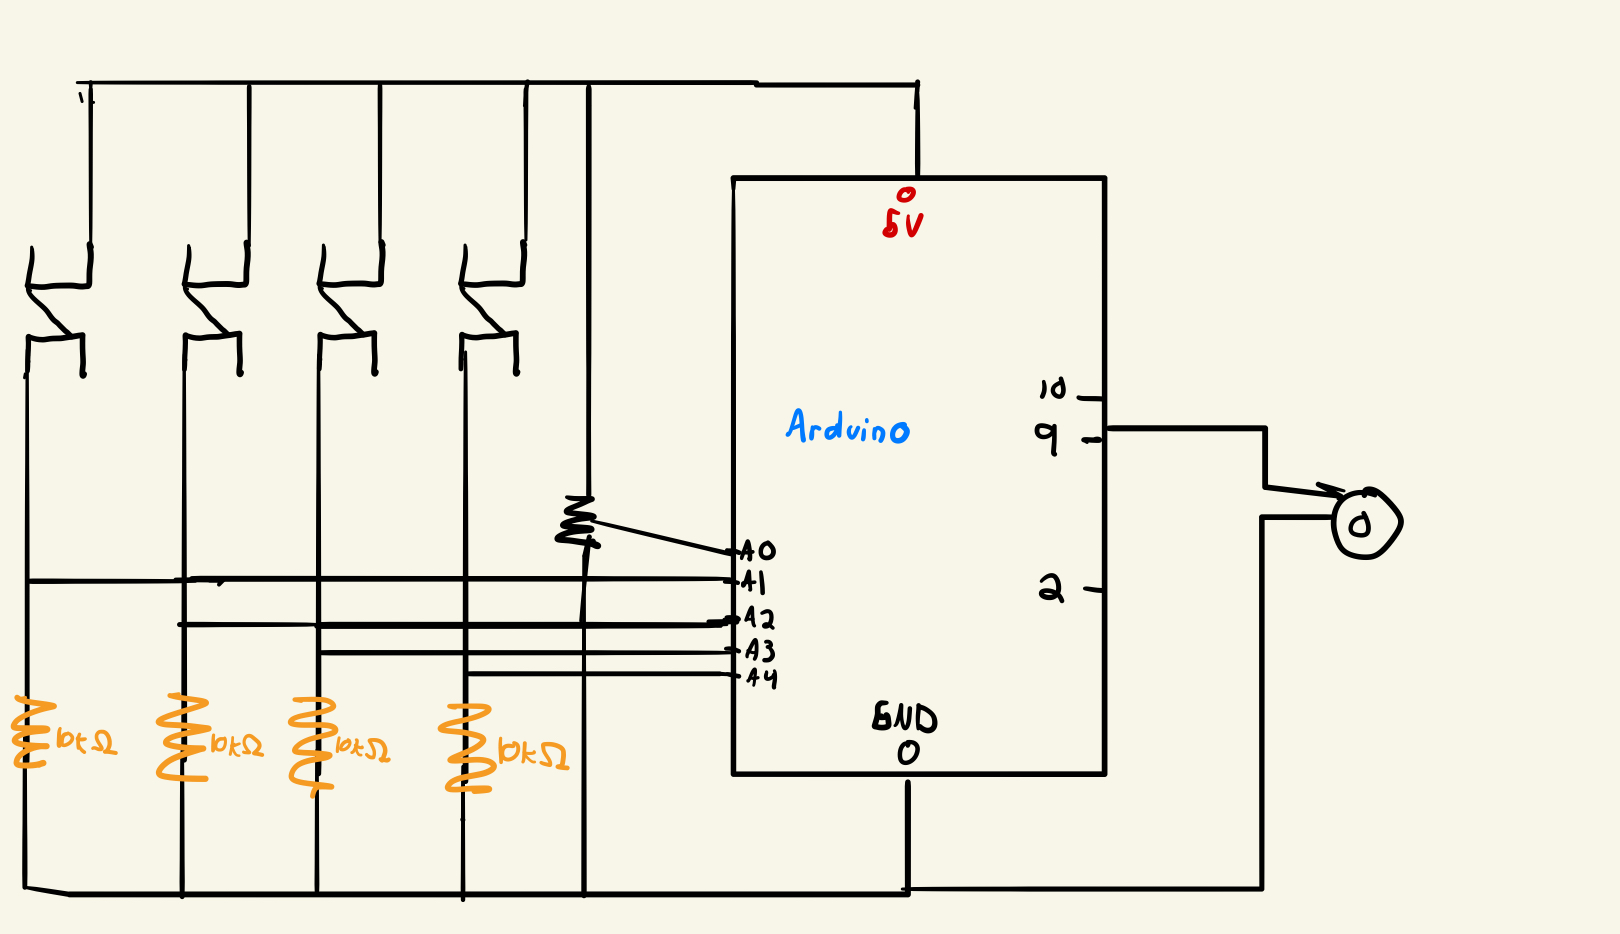 5V
10
Arduino
9
A0
A1
2
A2
A3
A4
GND
10kΩ
10kΩ
10kΩ
10kΩ